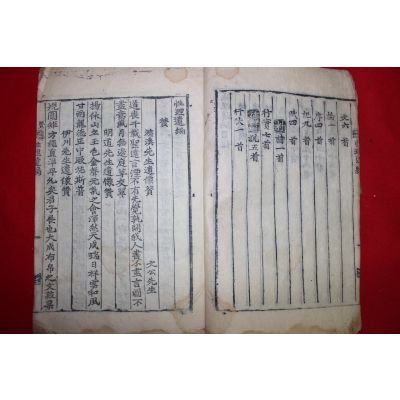 文六 首
論一 首
序四 首
記九 首
四 首
詩 首
七 首
說五 首
二 首
性理遺編
贊
濂溪先生遺像贊 文公先生
道喪千載聖遠言湮不有先覺孰開我人書不盡言圖不
盡意風月無邊庭草交翠
明道先生遺像贊
揚休山立玉色金聲元氣之會渾然天成瑞日祥雲和風
甘雨龍德正中厥施斯普
伊川先生遺像贊
規圓矩方繩直準平允矣君子展也大成布帛之文菽粟